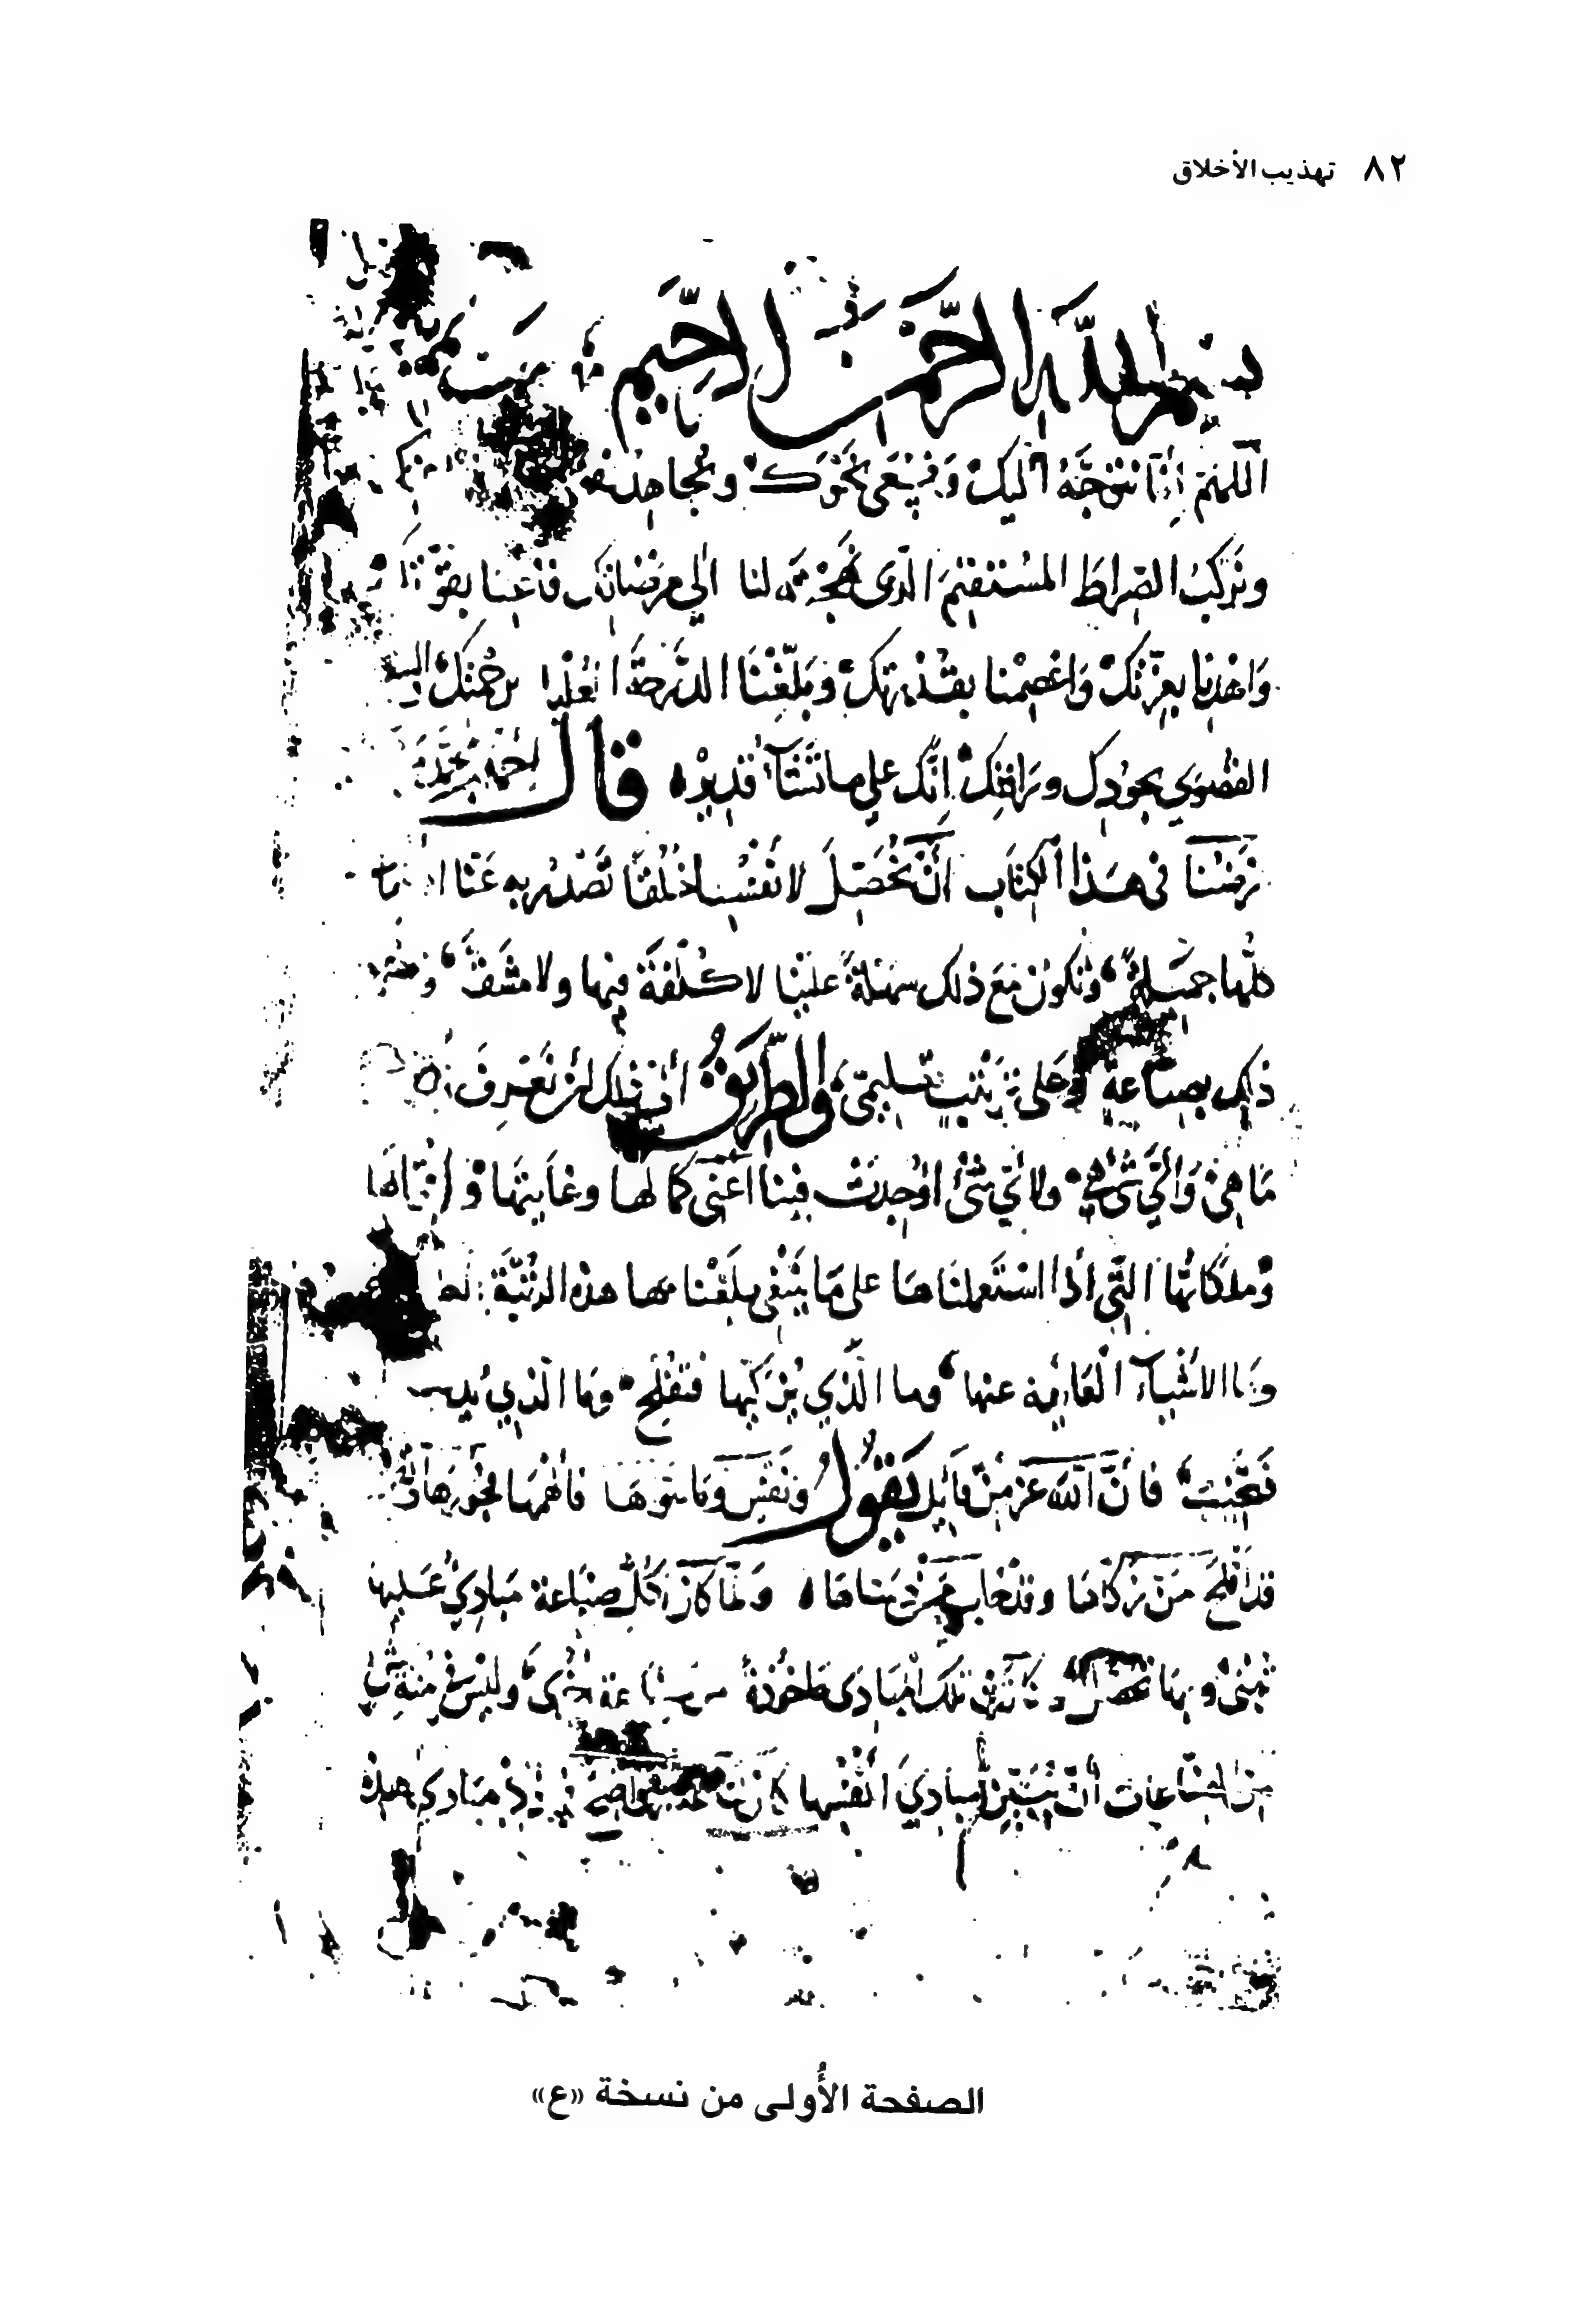 ٨٢ تهذيب الأخلاق
بسم الله الرحمن الرحيم
اللهم إنا نتوجه اليك ونسعى نحوك ونجاهد
ونركب الصراط المستقيم الذي نهجته لنا الى مرضاتك فاعنا بقوتك
واهدنا بعزتك واعصمنا بقدرتك وبلغنا الدرجة العليا برحمتك
القصوى بجودك ورافتك انك على ما تشاء قدير قال احمد بن محمد
غرضنا في هذا الكتاب أن نحصل لانفسنا خلقا تصدر به عنا
كلها جميلة وتكون مع ذلك سهلة علينا لا كلفة فيها ولا مشقة
ذلك بصناعة وعلى ترتيب تعليمي والطريق في ذلك أن نعرف
ما هي وأي شيء هي ولأي شيء اوجدت فينا أعني كمالها وغايتها و
وملكاتها التي اذا استعملناها على ما ينبغي بلغنا بها هذه الرتبة
وما الاشياء العائقة عنها وما الذي يزكيها فتفلح وما الذي
فتخيب فان الله عز من قائل يقول ونفس وما سواها فألهمها فجورها
قد أفلح من زكاها وقد خاب من دساها ولما كان لكل صناعة مبادئ عليها
تبنى وبها تحصل كانت تلك المبادئ مأخوذة من صناعة اخرى وليس في
من الصناعات أن تبين مبادئ أنفسها كان لنا مبادئ هذه
الصفحة الأولى من نسخة «ع»